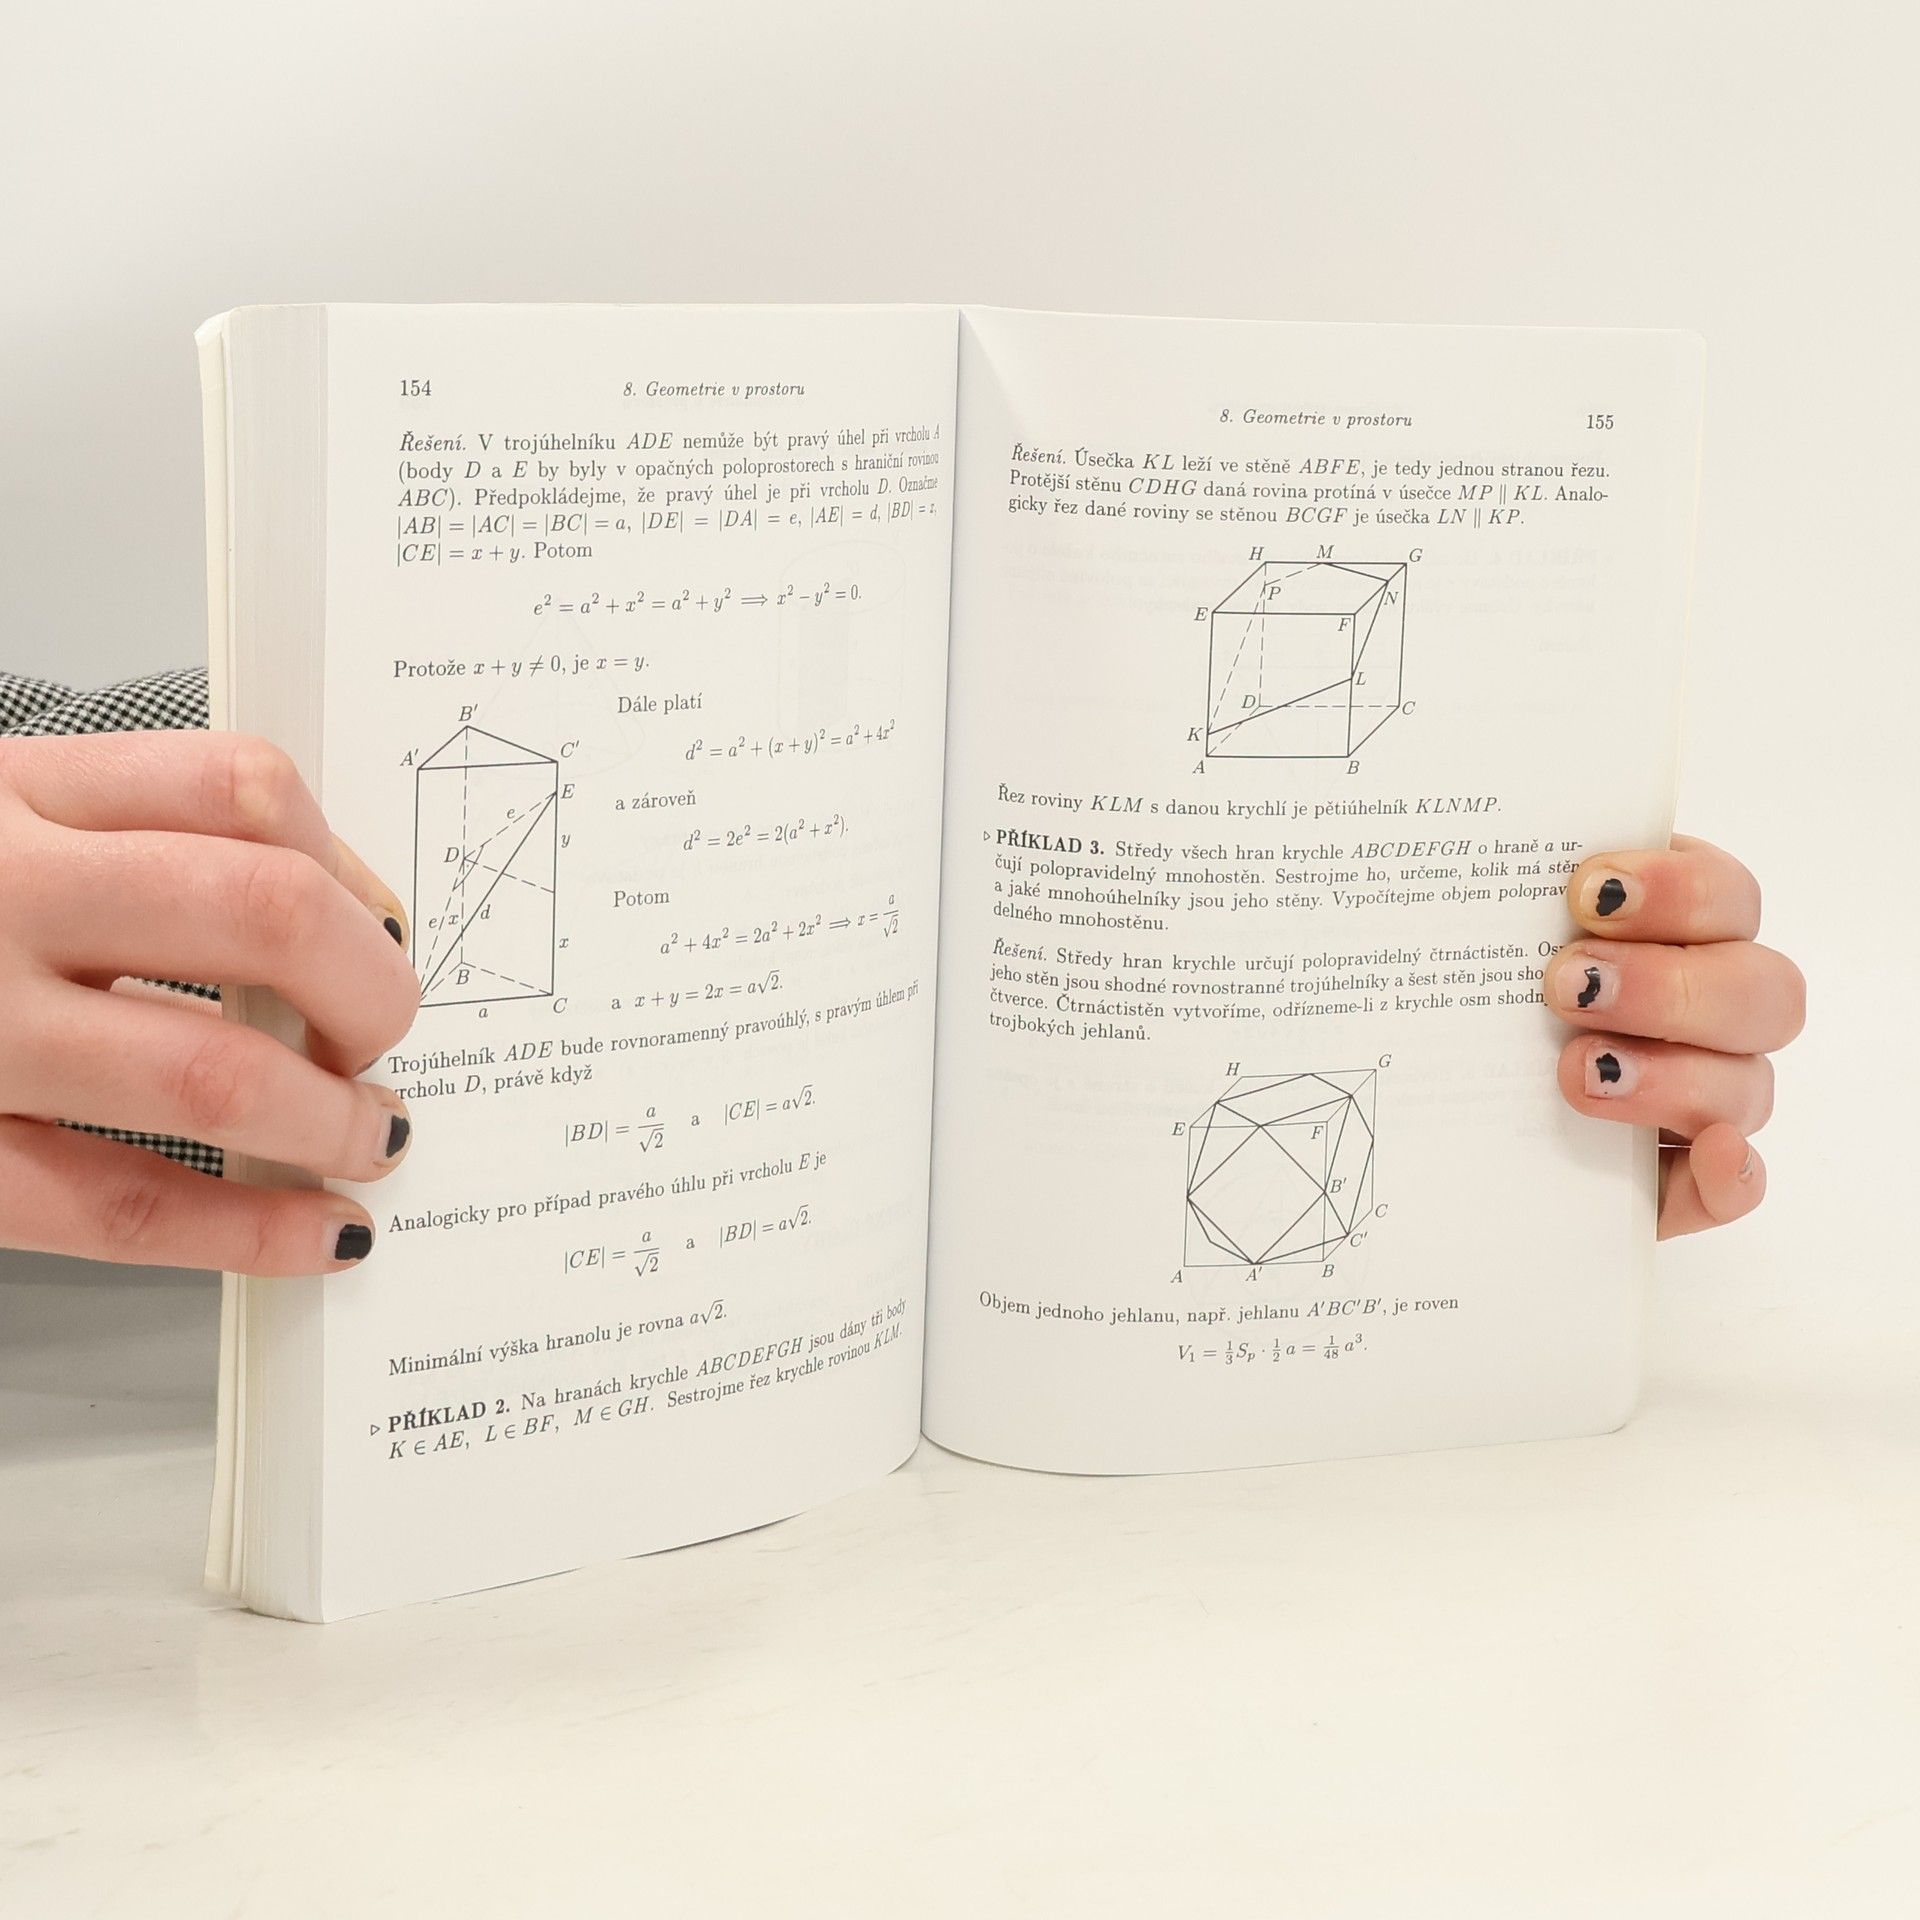 154
8. Geometrie v prostoru
Řešení. V trojúhelníku ADE nemůže být pravý úhel při vrcholu A
(body D a E by byly v opačných poloprostorech s hraniční rovinou
ABC). Předpokládejme, že pravý úhel je při vrcholu D. Označme
|AB| = |AC| = |BC| = a, |DE| = |DA| = e, |AE| = d, |BD| = x,
|CE| = x + y. Potom
e² = a² + x² = a² + y² ⟹ x² − y² = 0.
Protože x + y ≠ 0, je x = y.
Dále platí
d² = a² + (x + y)² = a² + 4x²
a zároveň
d² = 2e² = 2(a² + x²).
Potom
a² + 4x² = 2a² + 2x² ⟹ x = a/√2
a x + y = 2x = a√2.
B'
A'
C'
E
e
y
D
e
x
d
x
B
C
a
Trojúhelník ADE bude rovnoramenný pravoúhlý, s pravým úhlem při
vrcholu D, právě když
|BD| = a/√2 a |CE| = a√2.
Analogicky pro případ pravého úhlu při vrcholu E je
|CE| = a/√2 a |BD| = a√2.
Minimální výška hranolu je rovna a√2.
▷ PŘÍKLAD 2. Na hranách krychle ABCDEFGH jsou dány tři body
K ∈ AE, L ∈ BF, M ∈ GH. Sestrojme řez krychle rovinou KLM.
8. Geometrie v prostoru
155
Řešení. Úsečka KL leží ve stěně ABFE, je tedy jednou stranou řezu.
Protější stěnu CDHG daná rovina protíná v úsečce MP ∥ KL. Analo-
gicky řez dané roviny se stěnou BCGF je úsečka LN ∥ KP.
H
M
G
P
N
E
F
L
D
C
K
A
B
Řez roviny KLM s danou krychlí je pětiúhelník KLNMP.
▷ PŘÍKLAD 3. Středy všech hran krychle ABCDEFGH o hraně a ur-
čují polopravidelný mnohostěn. Sestrojme ho, určeme, kolik má stěn
a jaké mnohoúhelníky jsou jeho stěny. Vypočítejme objem poloprav
delného mnohostěnu.
Řešení. Středy hran krychle určují polopravidelný čtrnáctistěn. Os
jeho stěn jsou shodné rovnostranné trojúhelníky a šest stěn jsou sho
čtverce. Čtrnáctistěn vytvoříme, odřízneme-li z krychle osm shodn
trojbokých jehlanů.
H
G
E
F
B'
C
C'
A
A'
B
Objem jednoho jehlanu, např. jehlanu A'BC'B', je roven
V₁ = ⅓Sₚ · ½ a = 1/48 a³.